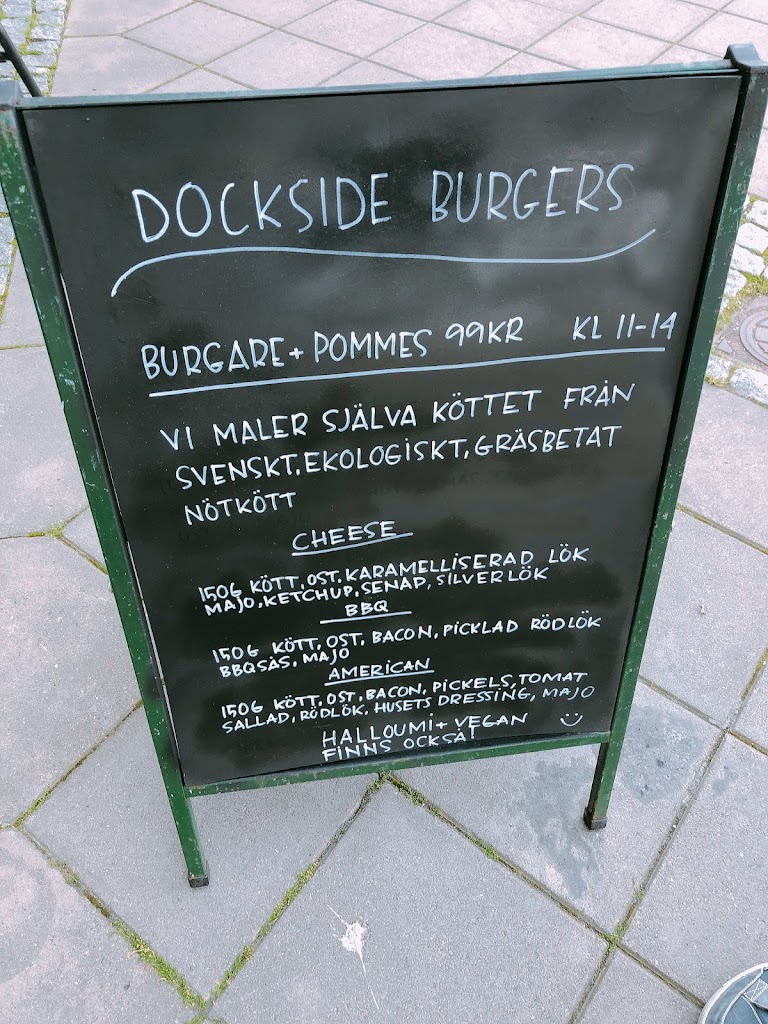 DOCKSIDE BURGERS
BURGARE + POMMES 99KR KL 11-14
VI MALER SJÄLVA KÖTTET FRÅN
SVENSKT, EKOLOGISKT, GRÄSBETAT
NÖTKÖTT
CHEESE
150G KÖTT, OST, KARAMELLISERAD LÖK
MAJO, KETCHUP, SENAP, SILVERLÖK
BBQ
150G KÖTT, OST, BACON, PICKLAD RÖDLÖK
BBQSÅS, MAJO
AMERICAN
150G KÖTT, OST, BACON, PICKELS, TOMAT
SALLAD, RÖDLÖK, HUSETS DRESSING, MAJO
HALLOUMI + VEGAN
FINNS OCKSÅ!